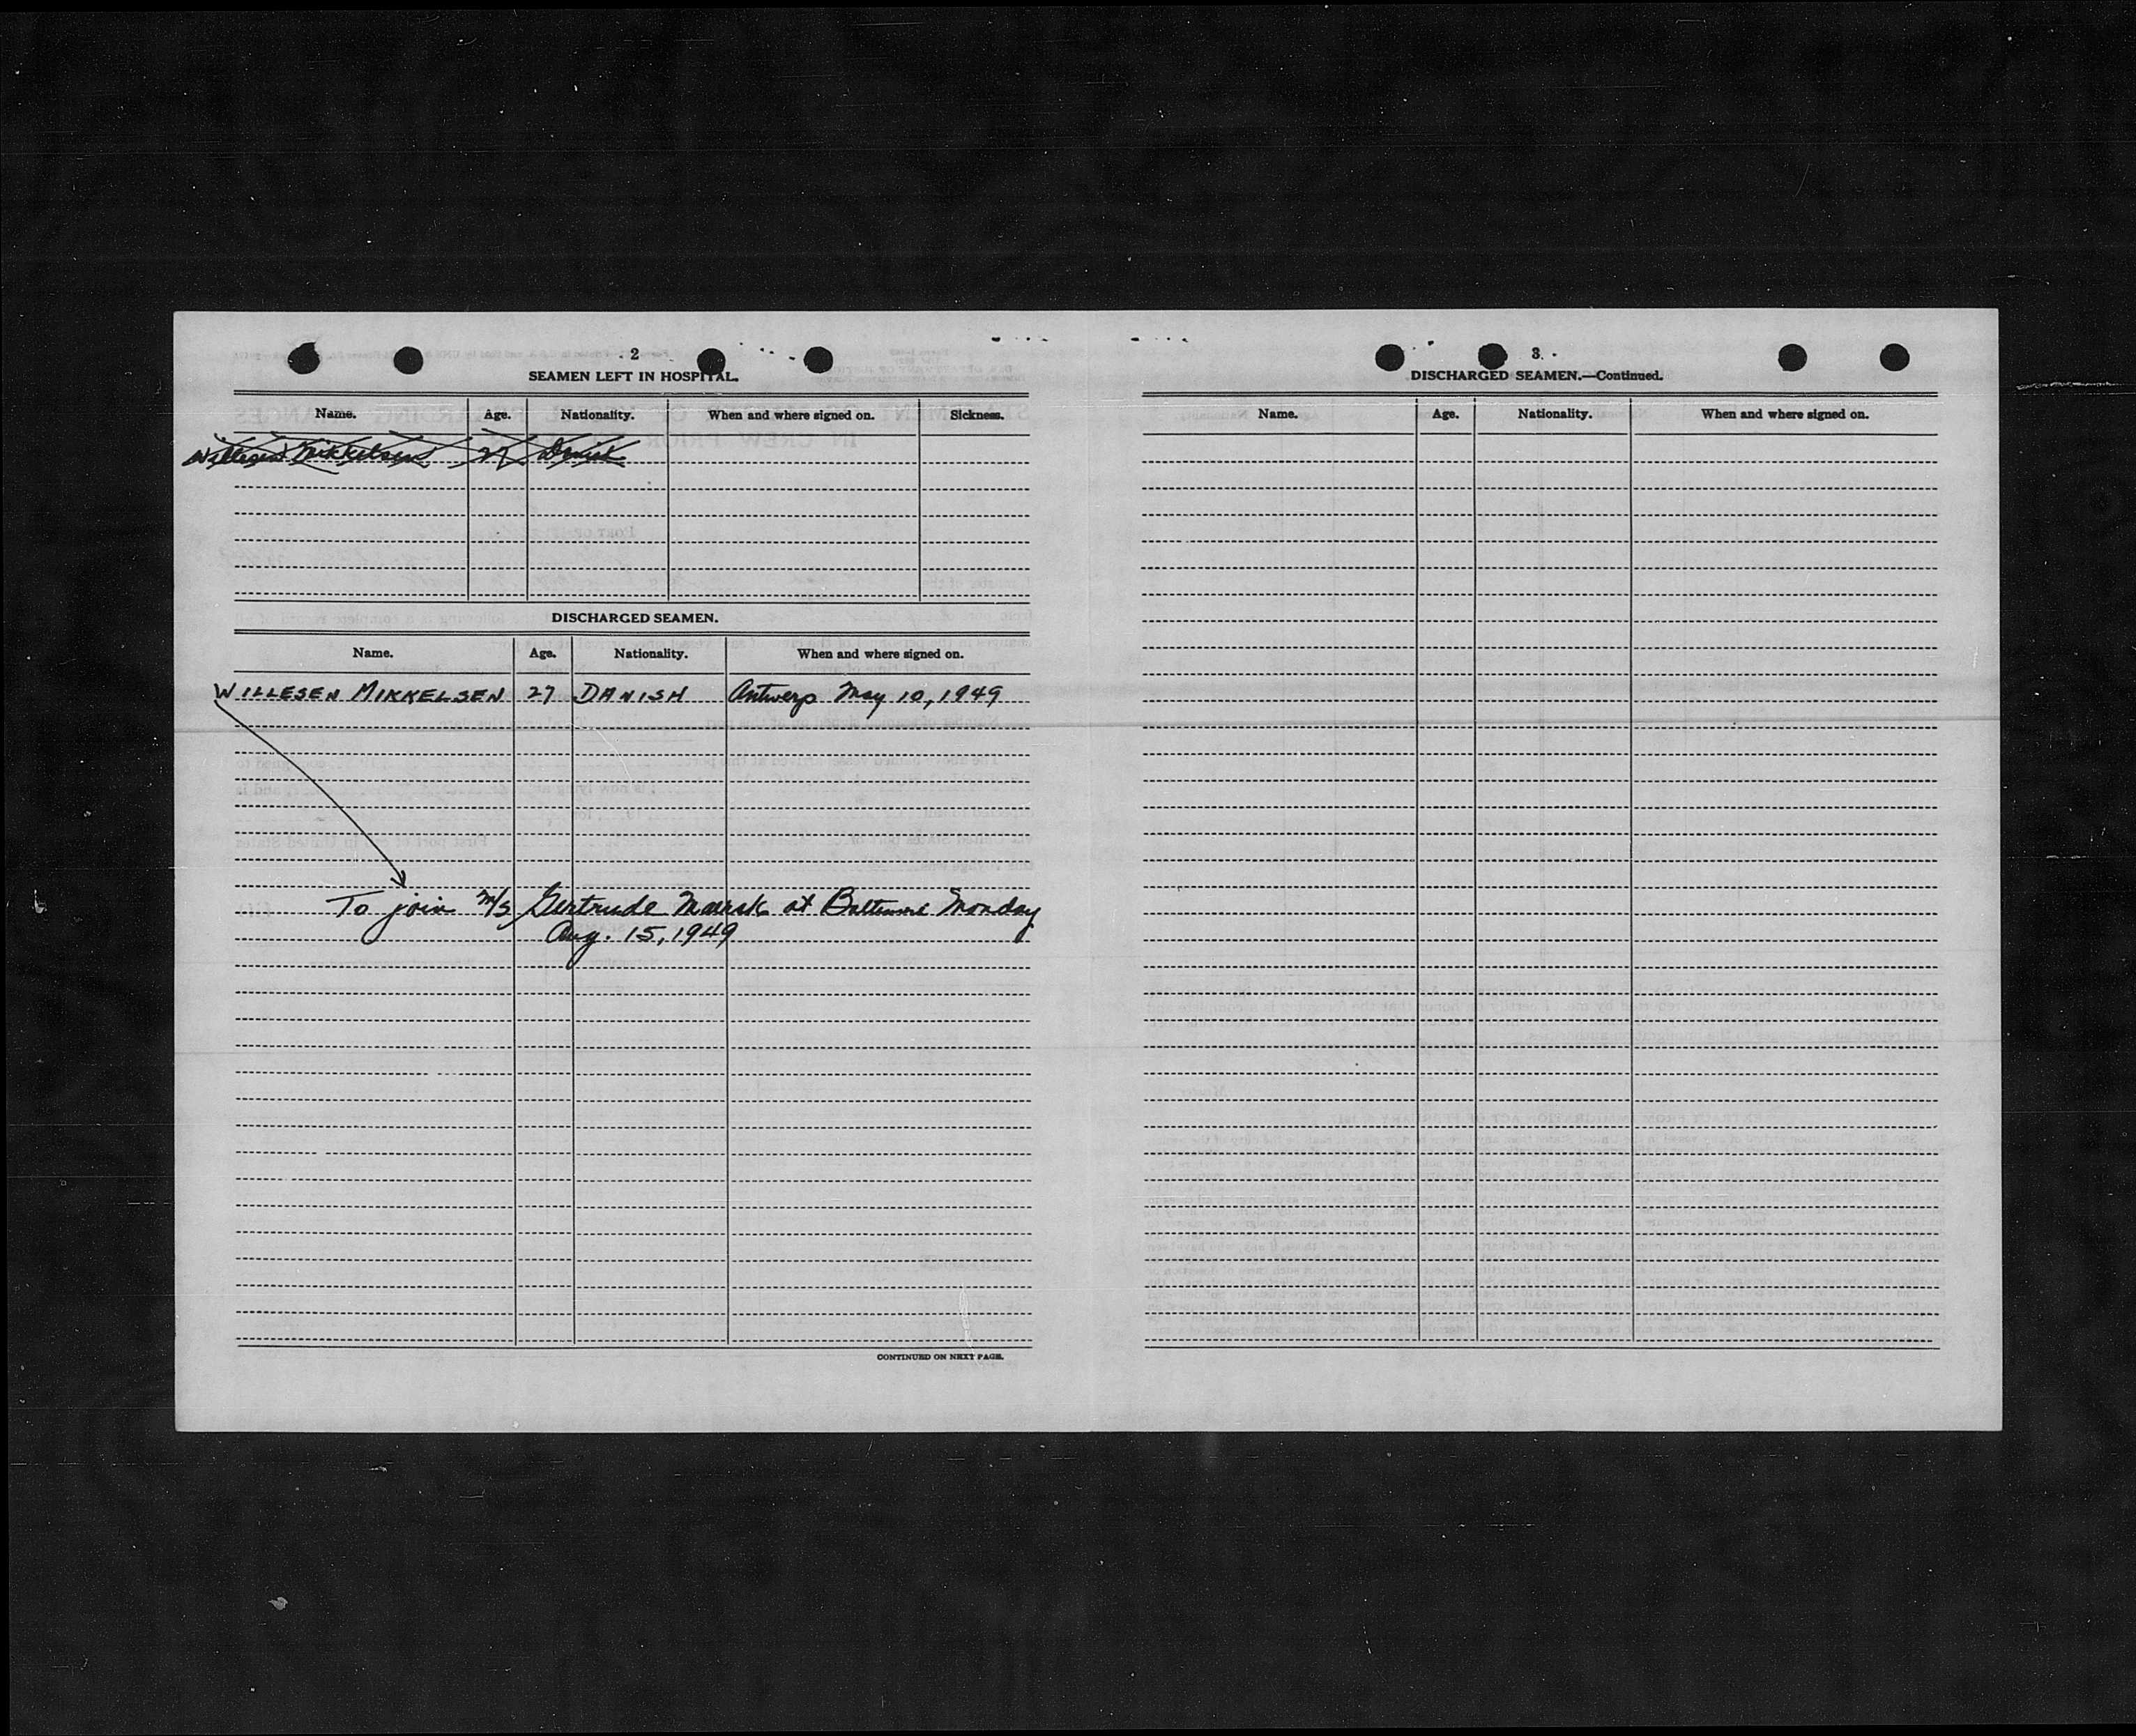 2
SEAMEN LEFT IN HOSPITAL.
Name. Age. Nationality. When and where signed on. Sickness.
Willesen Mikkelsen 27 Danish
DISCHARGED SEAMEN.
Name. Age. Nationality. When and where signed on.
WILLESEN MIKKELSEN 27 DANISH Antwerp May 10, 1949
To join M/S Gertrude Maersk at Baltimore Monday
Aug. 15, 1949
CONTINUED ON NEXT PAGE.
3.
DISCHARGED SEAMEN.—Continued.
Name. Age. Nationality. When and where signed on.